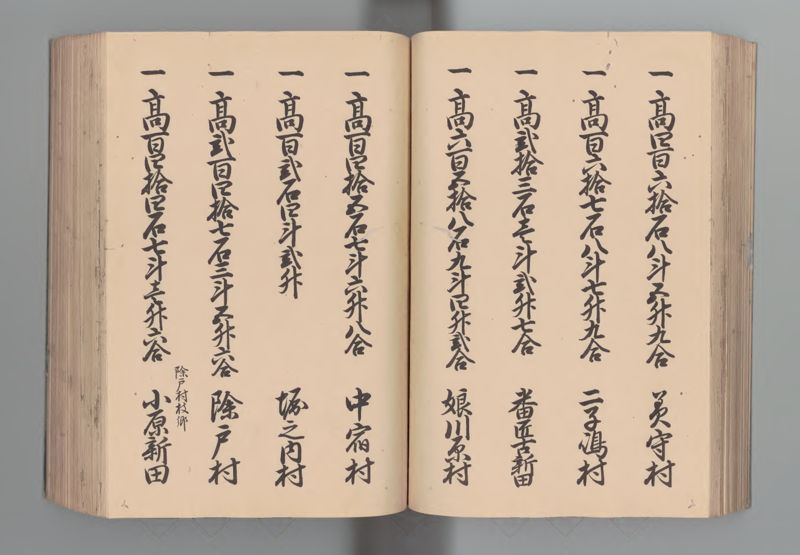 一 髙四百六拾石八斗五升九合 美守村
一 髙百六拾七石八斗七升九合 二子嶋村
一 髙弐拾三石壱斗弐升七合 番匠古新田
一 髙六百五拾八石九斗四升弐合 娘川原村
一 髙百四拾五石七斗六升八合 中宿村
一 髙百弐石四斗弐升 堀之内村
一 髙弐百四拾七石三斗五升六合 除戸村
除戸村枝郷
一 髙百四拾四石七斗壱升六合 小原新田